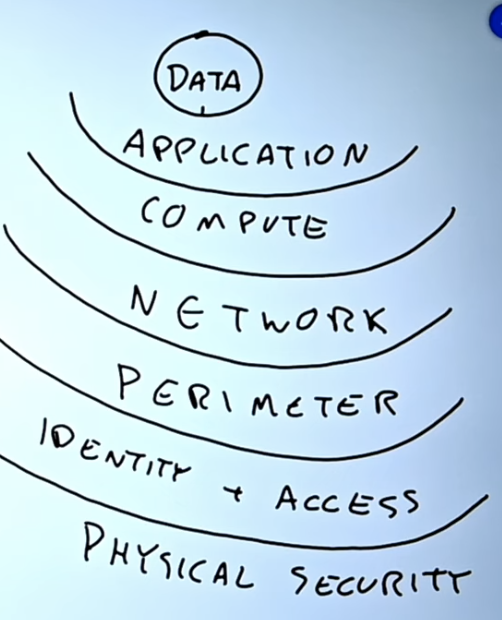 DATA
APPLICATION
COMPUTE
NETWORK
PERIMETER
IDENTITY + ACCESS
PHYSICAL SECURITY